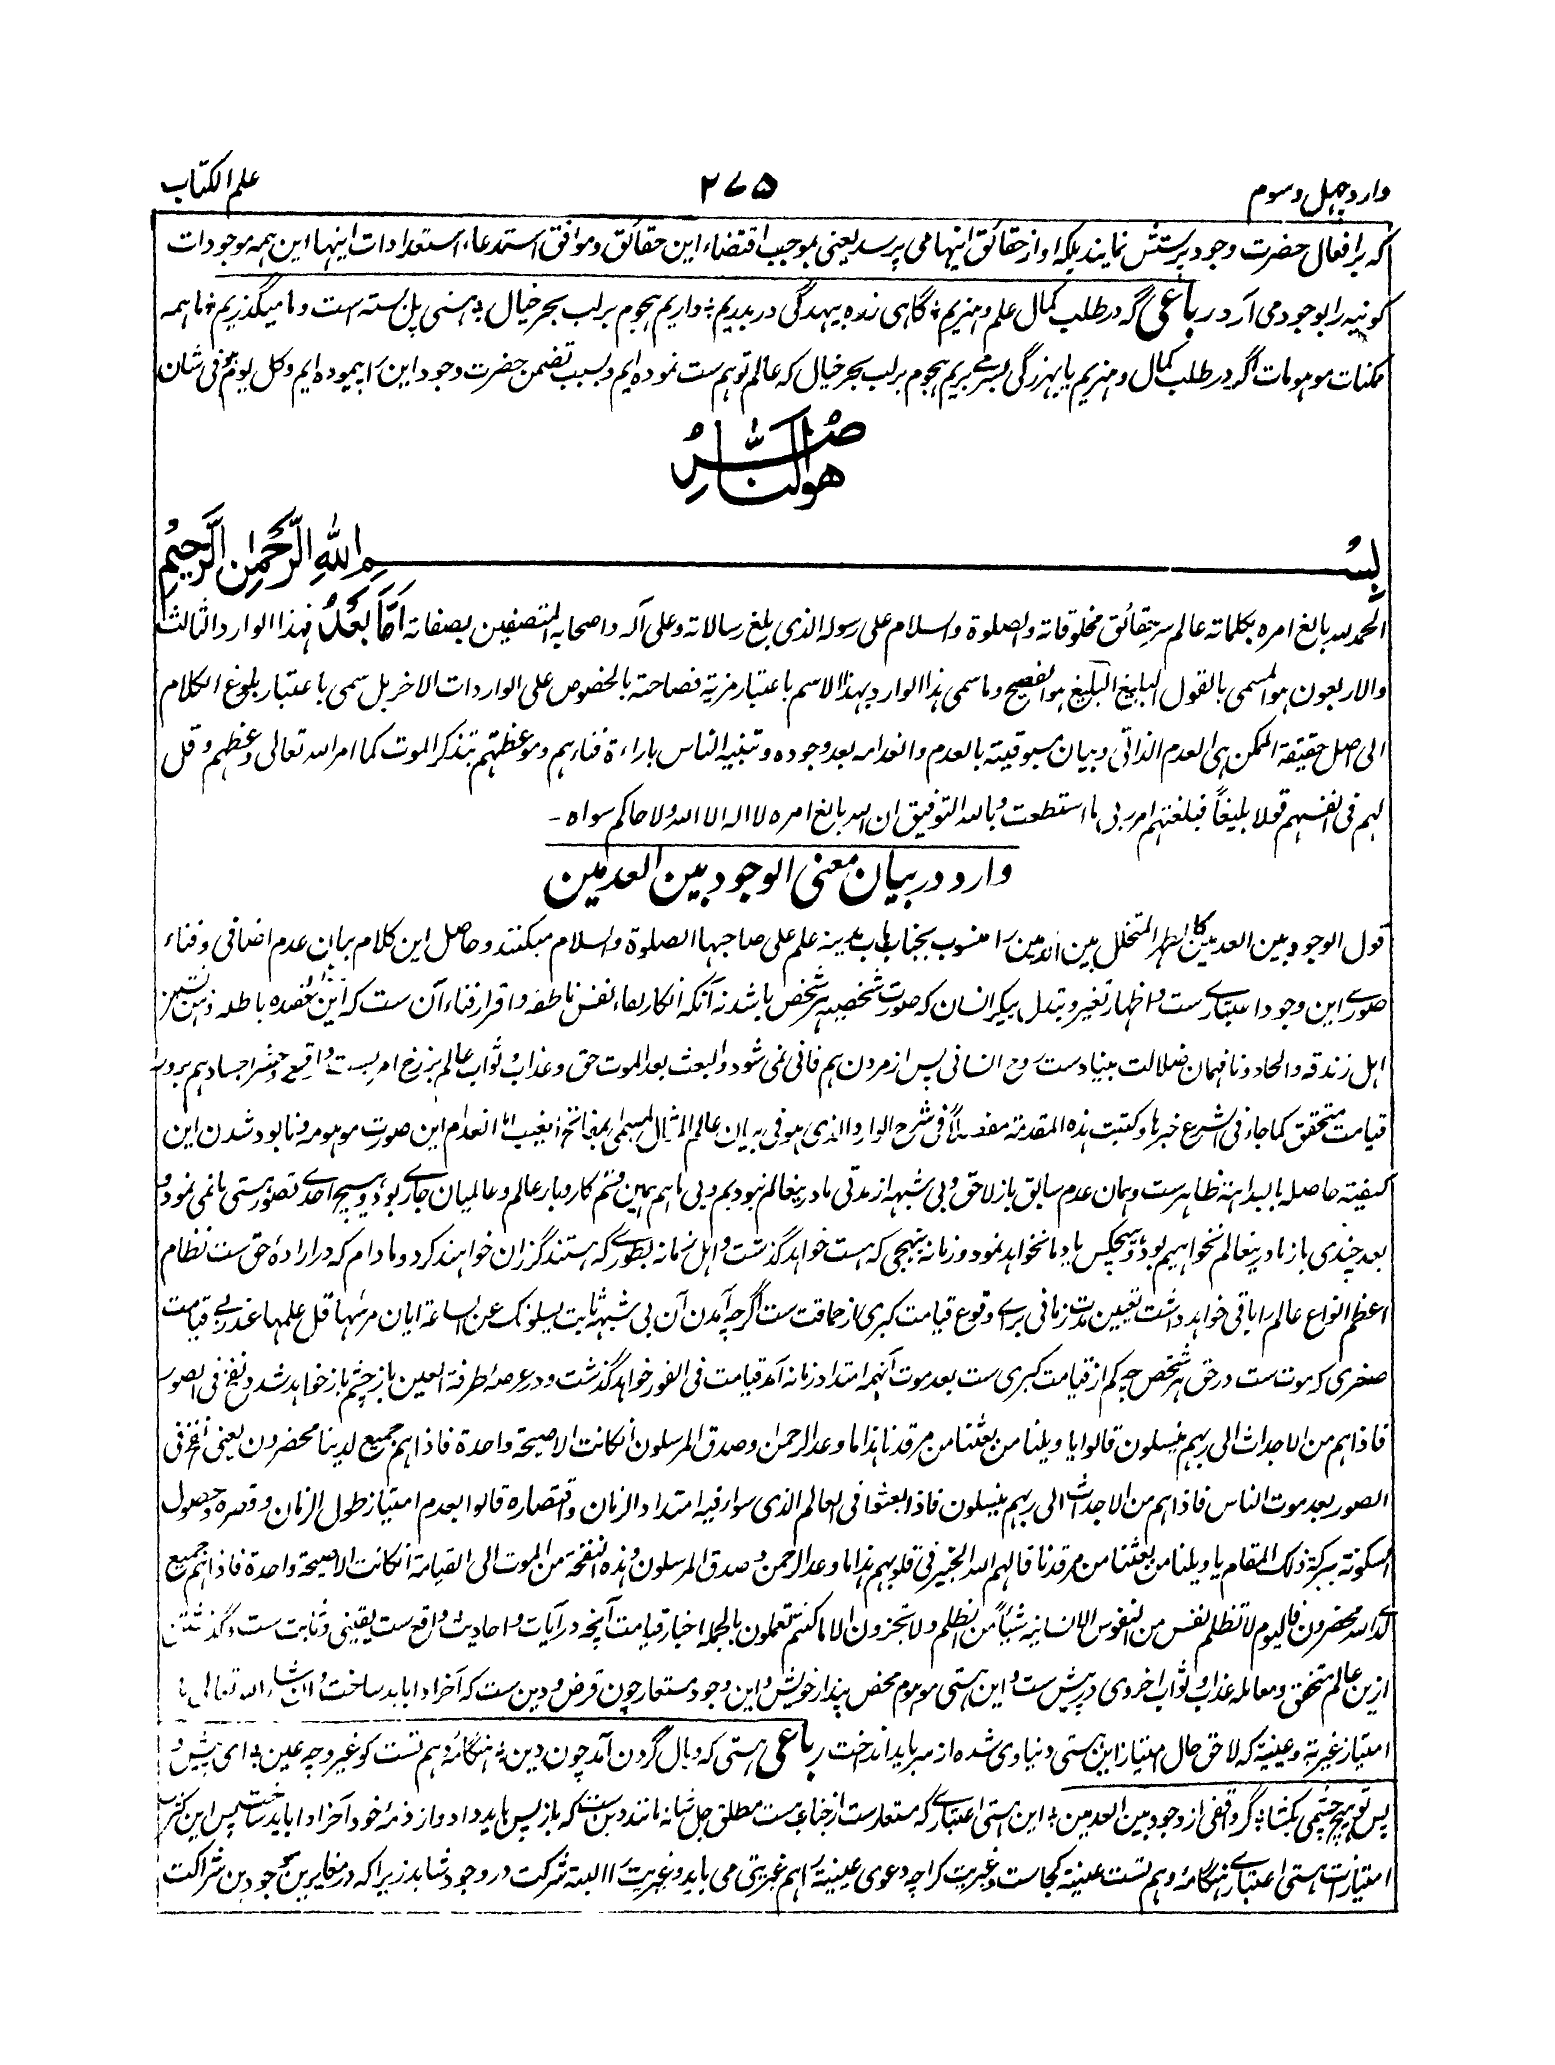 وارد چہل و سوم ۲۷۵ علم الکتاب
کہ بر افعال حضرت وجود پرستش نمایند بلکہ او از حقائق اینہا می پرسد یعنی بموجب اقتضاء این حقائق و موافق استدعاء استعدادات اینہا این ہمہ موجودات
کونیہ را بوجود می آرد رباعی گہ در طلب کمال علم و ہنریم ٭ گاہی زدہ بیہدگی در بدریم ٭ داریم ہجوم بر لب بحر خیال ٭ ہستی پل بستہ است و ما میگذریم ٭ ما ہمہ
مکنات موہومات اگر در طلب کمال و ہنریم یا بہرزگی بسر می بریم ہجوم بر لب بحر خیال کہ عالم توہم ست نمودہ ایم و بسبب تضمن حضرت وجود این را پیمودہ ایم و کل یوم ہو فی شان
ھو الناصر
بسم اللہ الرحمٰن الرحیم
الحمد للہ بالغ امرہ بکلماتہ عالم سر حقائق مخلوقاتہ والصلوۃ والسلام علی رسولہ الذی بلغ رسالاتہ وعلی آلہ واصحابہ المتصفین بصفاتہ اَمَّا بَعْدُ فہذا الوارد الثالث
والاربعون ہو المسمی بالقول البلیغ البلیغ ہو الفصیح وما سمی ہذا الوارد بہذا الاسم باعتبار مزیۃ فصاحتہ بالخصوص علی الواردات الاخر بل سمی باعتبار بلوغ الکلام
الی اصل حقیقۃ الممکن ہی العدم الذاتی و بیان مسبوقیتہ بالعدم و انعدامہ بعد وجودہ و تنبیہ الناس باراءۃ فناءہم و موعظتہم بتذکر الموت کما امر اللہ تعالی وعظہم و قل
لہم فی انفسہم قولا بلیغاً فبلغتہم امر ربی ما استطعت وباللہ التوفیق ان اللہ بالغ امرہ لا الہ الا اللہ ولا حاکم سواہ ۔
وارد در بیان معنی الوجود بین العدمین
قول الوجود بین العدمین کالطہر المتخلل بین الدمین را منسوب بجناب باب مدینہ علم علی صاحبہا الصلوۃ والسلام میکنند و حاصل این کلام بیان عدم اضافی و فناء
صوری این وجود اعتباری ست و اظہار تغیر و تبدل پیکر انسان کہ صورت شخصیہ ہر شخص باشد نہ آنکہ انکار بقاء نفس ناطقہ و اقرار فناء آن ست کہ این عقدہ باطلہ
اہل زندقہ و الحاد و نافہمان ضلالت بنیاد ست روح انسانی پس از مردن ہم فانی نمی شود و البعث بعد الموت حق و عذاب و ثواب عالم برزخ امریست واقعی و حشر اجساد ہم بروز
قیامت متحقق کما جاء فی الشرع خبرہا و کتبت ہذہ المقدمۃ مفصلاً فی شرح الوارد الذی ہو فی بیان عالم المثال المسمی بمفاتح الغیب اما انعدام این صورت موہومہ و نابود شدن این
کیفیتہ حاصلہ بالبداہتہ ظاہر ست و ہمان عدم سابق باز لاحق و بی شبہہ از مدتی ما درینعالم نبودیم و بی ما ہم ہمین قسم کاروبار عالم و عالمیان جاری بود و ہیچ احدی تصور ہستی ما نمی نمود و
بعد چندی باز ما درینعالم نخواہیم بود و ہیچکس یاد ما نخواہد نمود و زمانہ بنہجی کہ ہست خواہد گذشت و اہل زمانہ بطوری کہ ہستند گزران خواہند کرد و مادام کہ در ارادۂ حق ست نظام
اعظم انواع عالم را باقی خواہد داشت تعیین مدت زمانی برای وقوع قیامت کبری از حماقت ست اگرچہ آمدن آن بی شبہہ ثابت یسئلونک عن الساعۃ ایان مرسٰہا قل علمہا عند ربی قیامت
صغری کہ موت ست در حق ہر شخص چہ کم از قیامت کبری ست بعد موت آنہمہ امتداد زمانہ آمد قیامت فی الفور خواہد گذشت و در عرصۂ طرفۃ العین باز چشم باز خواہد شد و نفخ فی الصور
فاذا ہم من الاجداث الی ربہم ینسلون قالوا یا ویلنا من بعثنا من مرقدنا ہذا ما وعد الرحمٰن و صدق المرسلون ان کانت الا صیحۃ واحدۃ فاذا ہم جمیع لدینا محضرون یعنی نفخ فی
الصور بعد موت الناس فاذا ہم من الاجداث الی ربہم ینسلون فاذا بعثوا فی العالم الذی سواء فیہ امتداد الزمان و اقتصارہ قالوا بعدم امتیاز طول الزمان و قصرہ و حصول
السکونۃ ببرکۃ ذلک المقام یا ویلنا من بعثنا من مرقدنا قالہم اللہ الخبیر فی قلوبہم ہذا ما وعد الرحمن و صدق المرسلون و ہذہ النفخۃ من الموت الی القیامۃ ان کانت الا صیحۃ واحدۃ فاذا ہم جمیع
لدی اللہ محضرون فالیوم لا تظلم نفس من النفوس الانسانیہ شیأ من الظلم ولا تجزون الا ما کنتم تعملون بالجملہ اخبار قیامت آنچہ در آیات و احادیث واقع ست یقینی و ثابت ست و گذشتن
ازین عالم متحقق و معاملہ عذاب و ثواب اخروی در پیش ست و این ہستی موہوم محض پندار خویش و این وجود مستعار چون قرض و دین ست کہ آخر ادا باید ساخت و ان شاء اللہ تعالی
امتیاز غیریۃ و عینیۃ کہ لاحق حال امتیاز این ہستی دنیاوی شدہ از سر باید انداخت رباعی ہستی کہ وبال گردن آمد چون دین ٭ ہنگامۂ وہم تست کو غیر و چہ عین ٭ ای پیش و
پس تو ہیچ چشمی بکشا ٭ گر واقفی از وجود بین العدمین ٭ این ہستی اعتباری کہ مستعار ست از جناب ہست مطلق جل شانہ مانند دین ست کہ باز پس باید داد و از ذمۂ خود آخر ادا باید ساخت پس این
امتیازات ہستی اعتباری ہنگامۂ وہم تست عینیۃ کجاست و غیریت کرا چہ دعوی عینیۃ را ہم غیریتی می باید و غیریت را البتہ شرکت در وجود شاید زیرا کہ در مغایرین موجودین شراکت